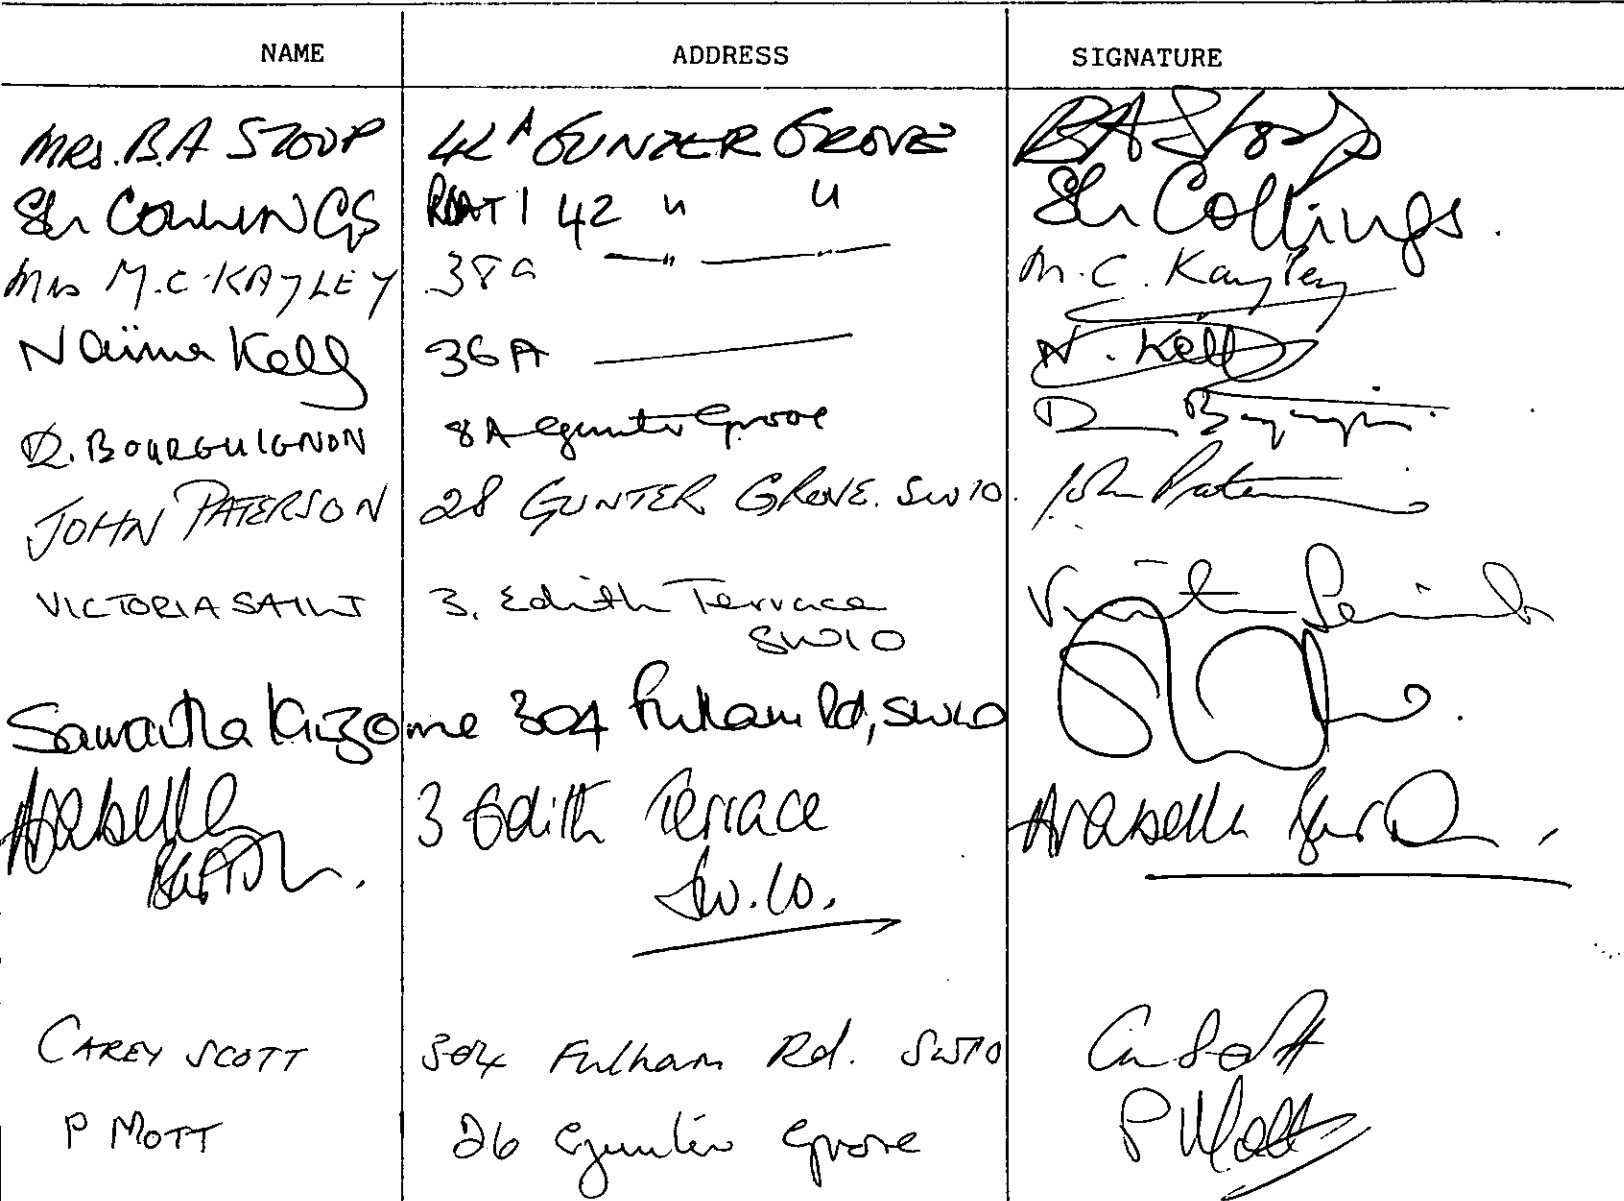 NAME ADDRESS SIGNATURE
MRS. B.A STOOP 42A GUNTER GROVE BA Stoop
COLLINGS FLAT 1 42 " " Collings.
Mrs M.C. KAYLEY 38a " M.C. Kayley
Naima Kelly 36A N. Kelly
D. BOURGUIGNON 8A Gunter Grove D
JOHN PATERSON 28 GUNTER GROVE. SW10. John Paterson
VICTORIA SAINT 3. Edith Terrace Victoria
SW10
Samantha 304 Fulham Rd, SW10
Arabella 3 Edith Terrace Arabella
SW.10.
CAREY SCOTT 304 Fulham Rd. SW10 Scott
P MOTT 26 Gunter Grove P Mott